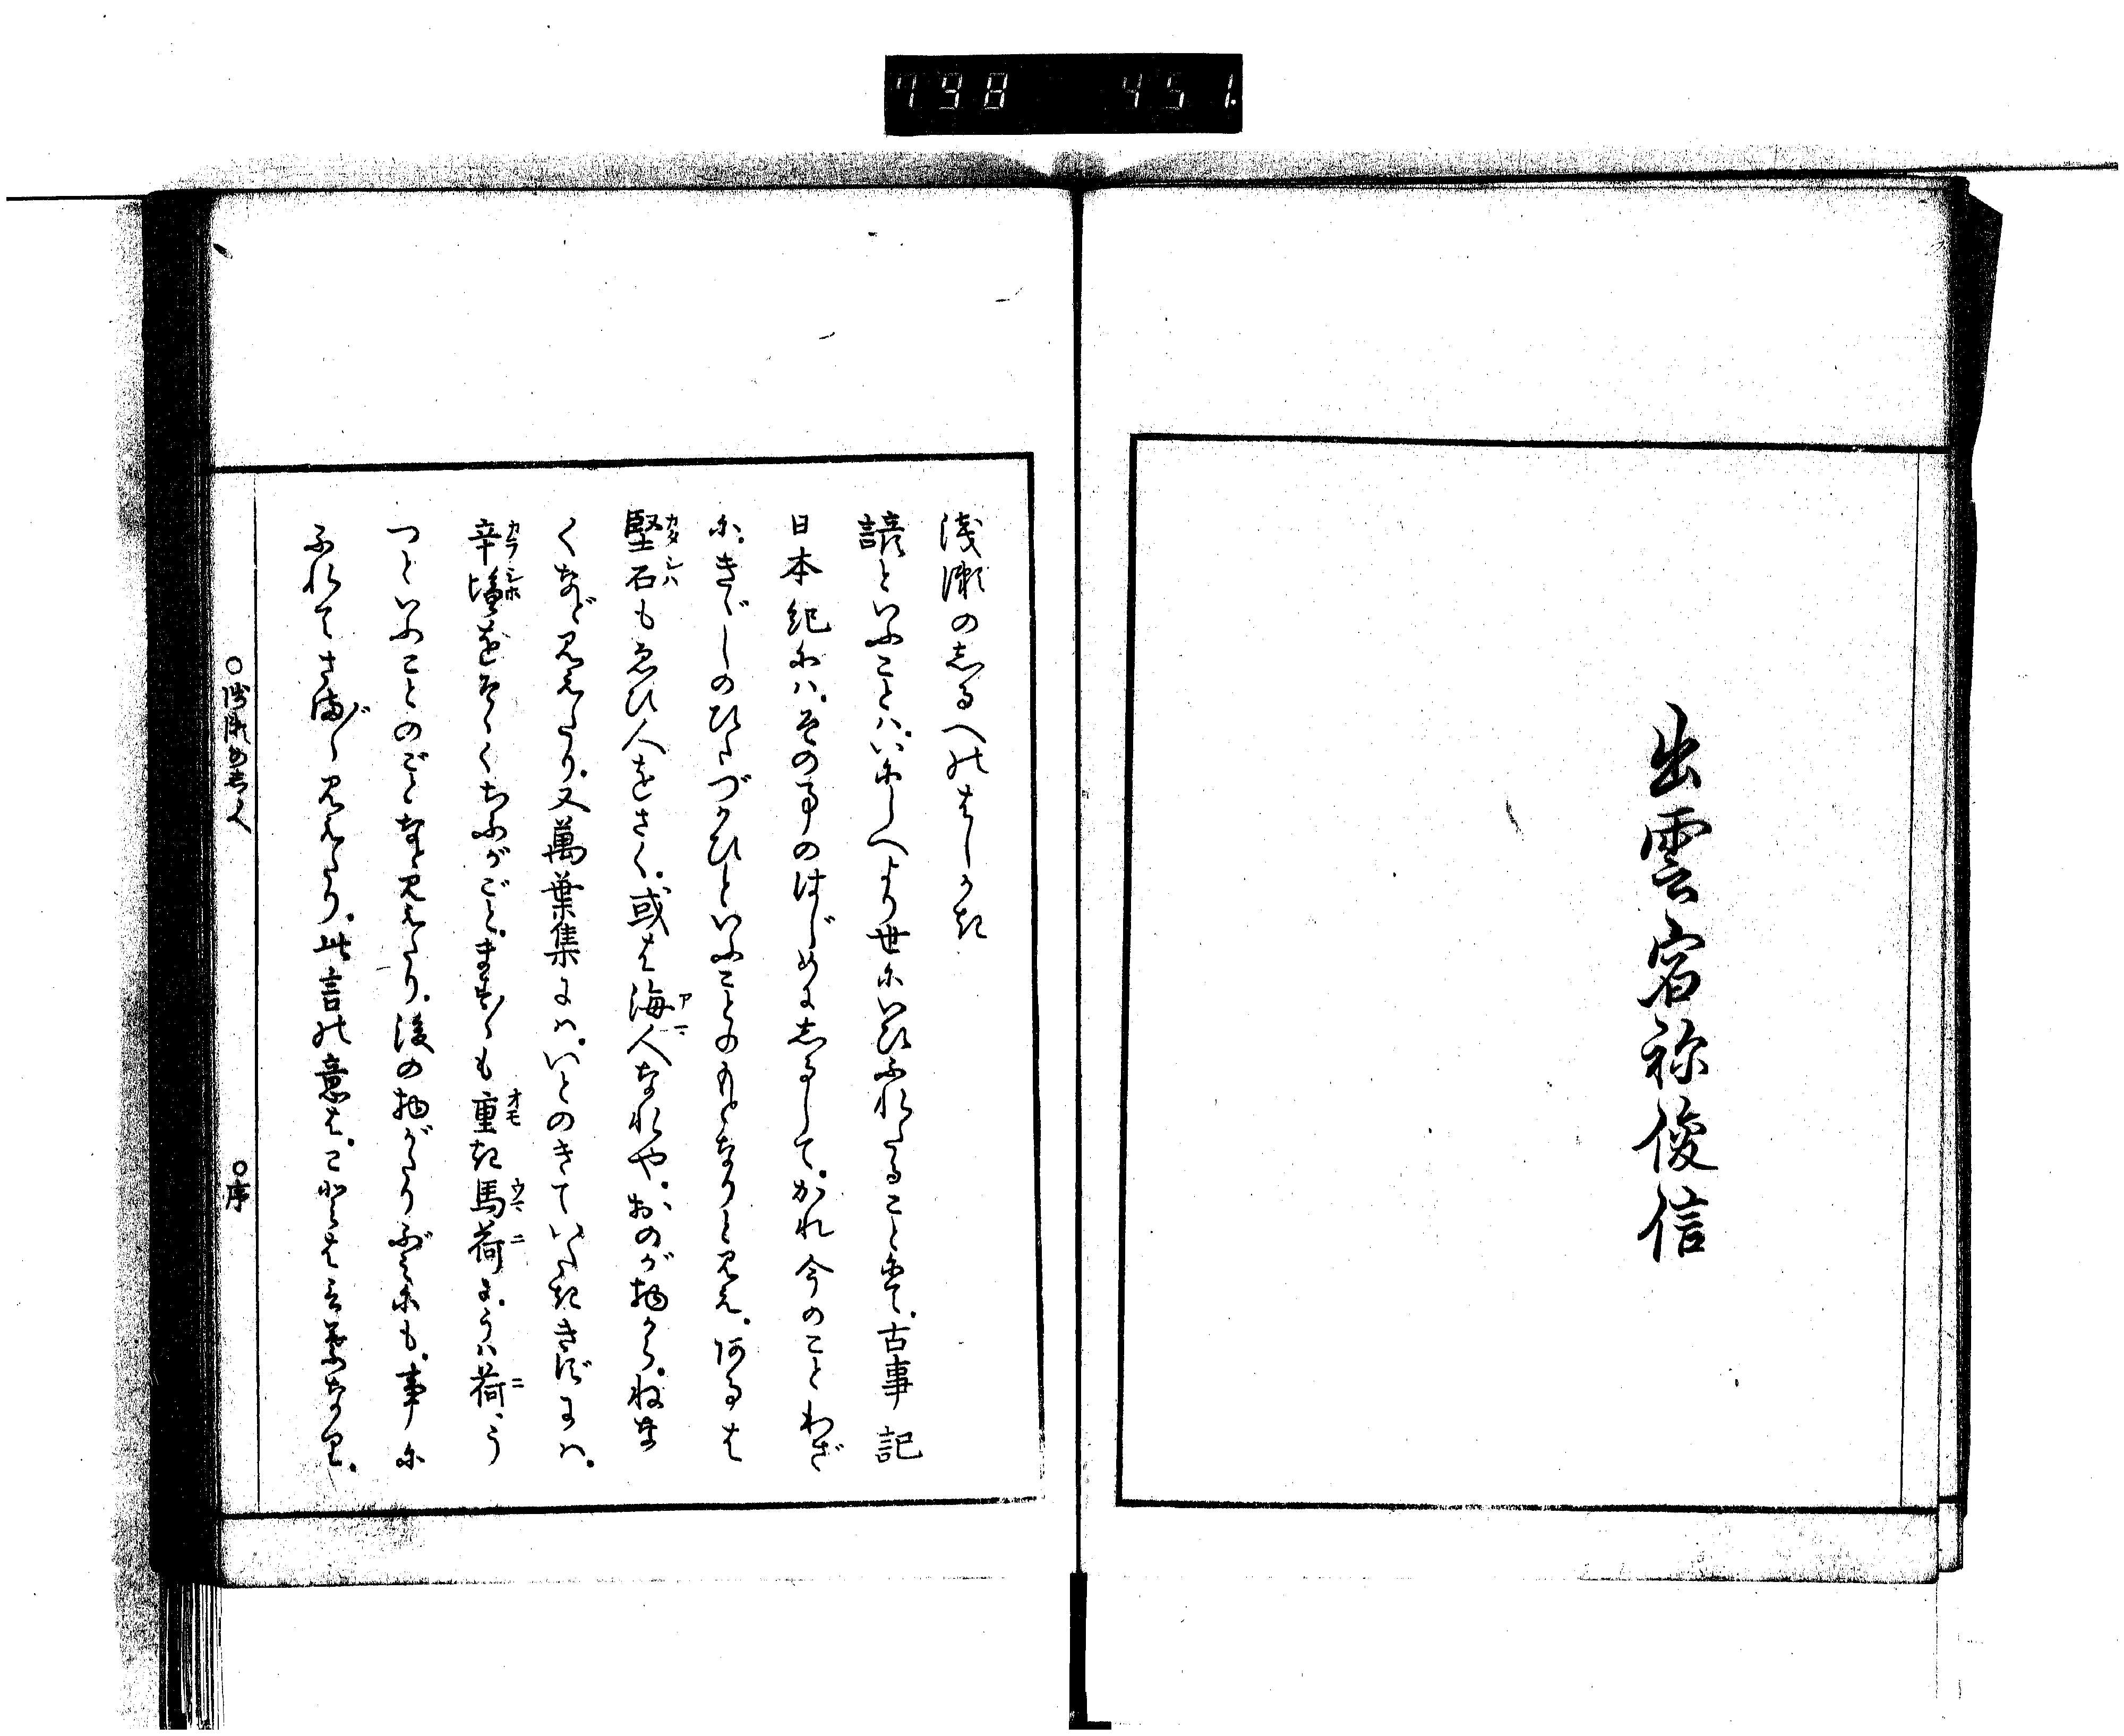 798 451
出雲宿祢俊信
浅瀬のしるへのはしかき
諺といふことハ、いにしへより世にいひふれたることにて、古事記
日本紀にハ、その事のはじめをしるして、かれ今のことわざ
に、きゞしのひたづかひといふことのもとなりと見え、あるは
堅石もゑひ人をさく、或は海人なれや、おのが物から、ねな
くなど見えたり、又萬葉集にハ、いとのきていたききずにハ、
辛塩をそゝくちふがごと、ますますも重き馬荷に、うハ荷う
つといふことのごとなど見えたり、後の物がたりぶみにも、事に
ふれてさまざま見えたり、此言の意は、
カタシハ
アマ
カラシホ
オモ
ウマニ
ニ
○浅瀬のしるへ ○序